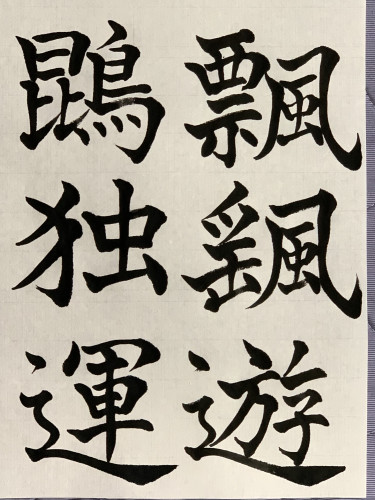 飄颻遊
鵾独運